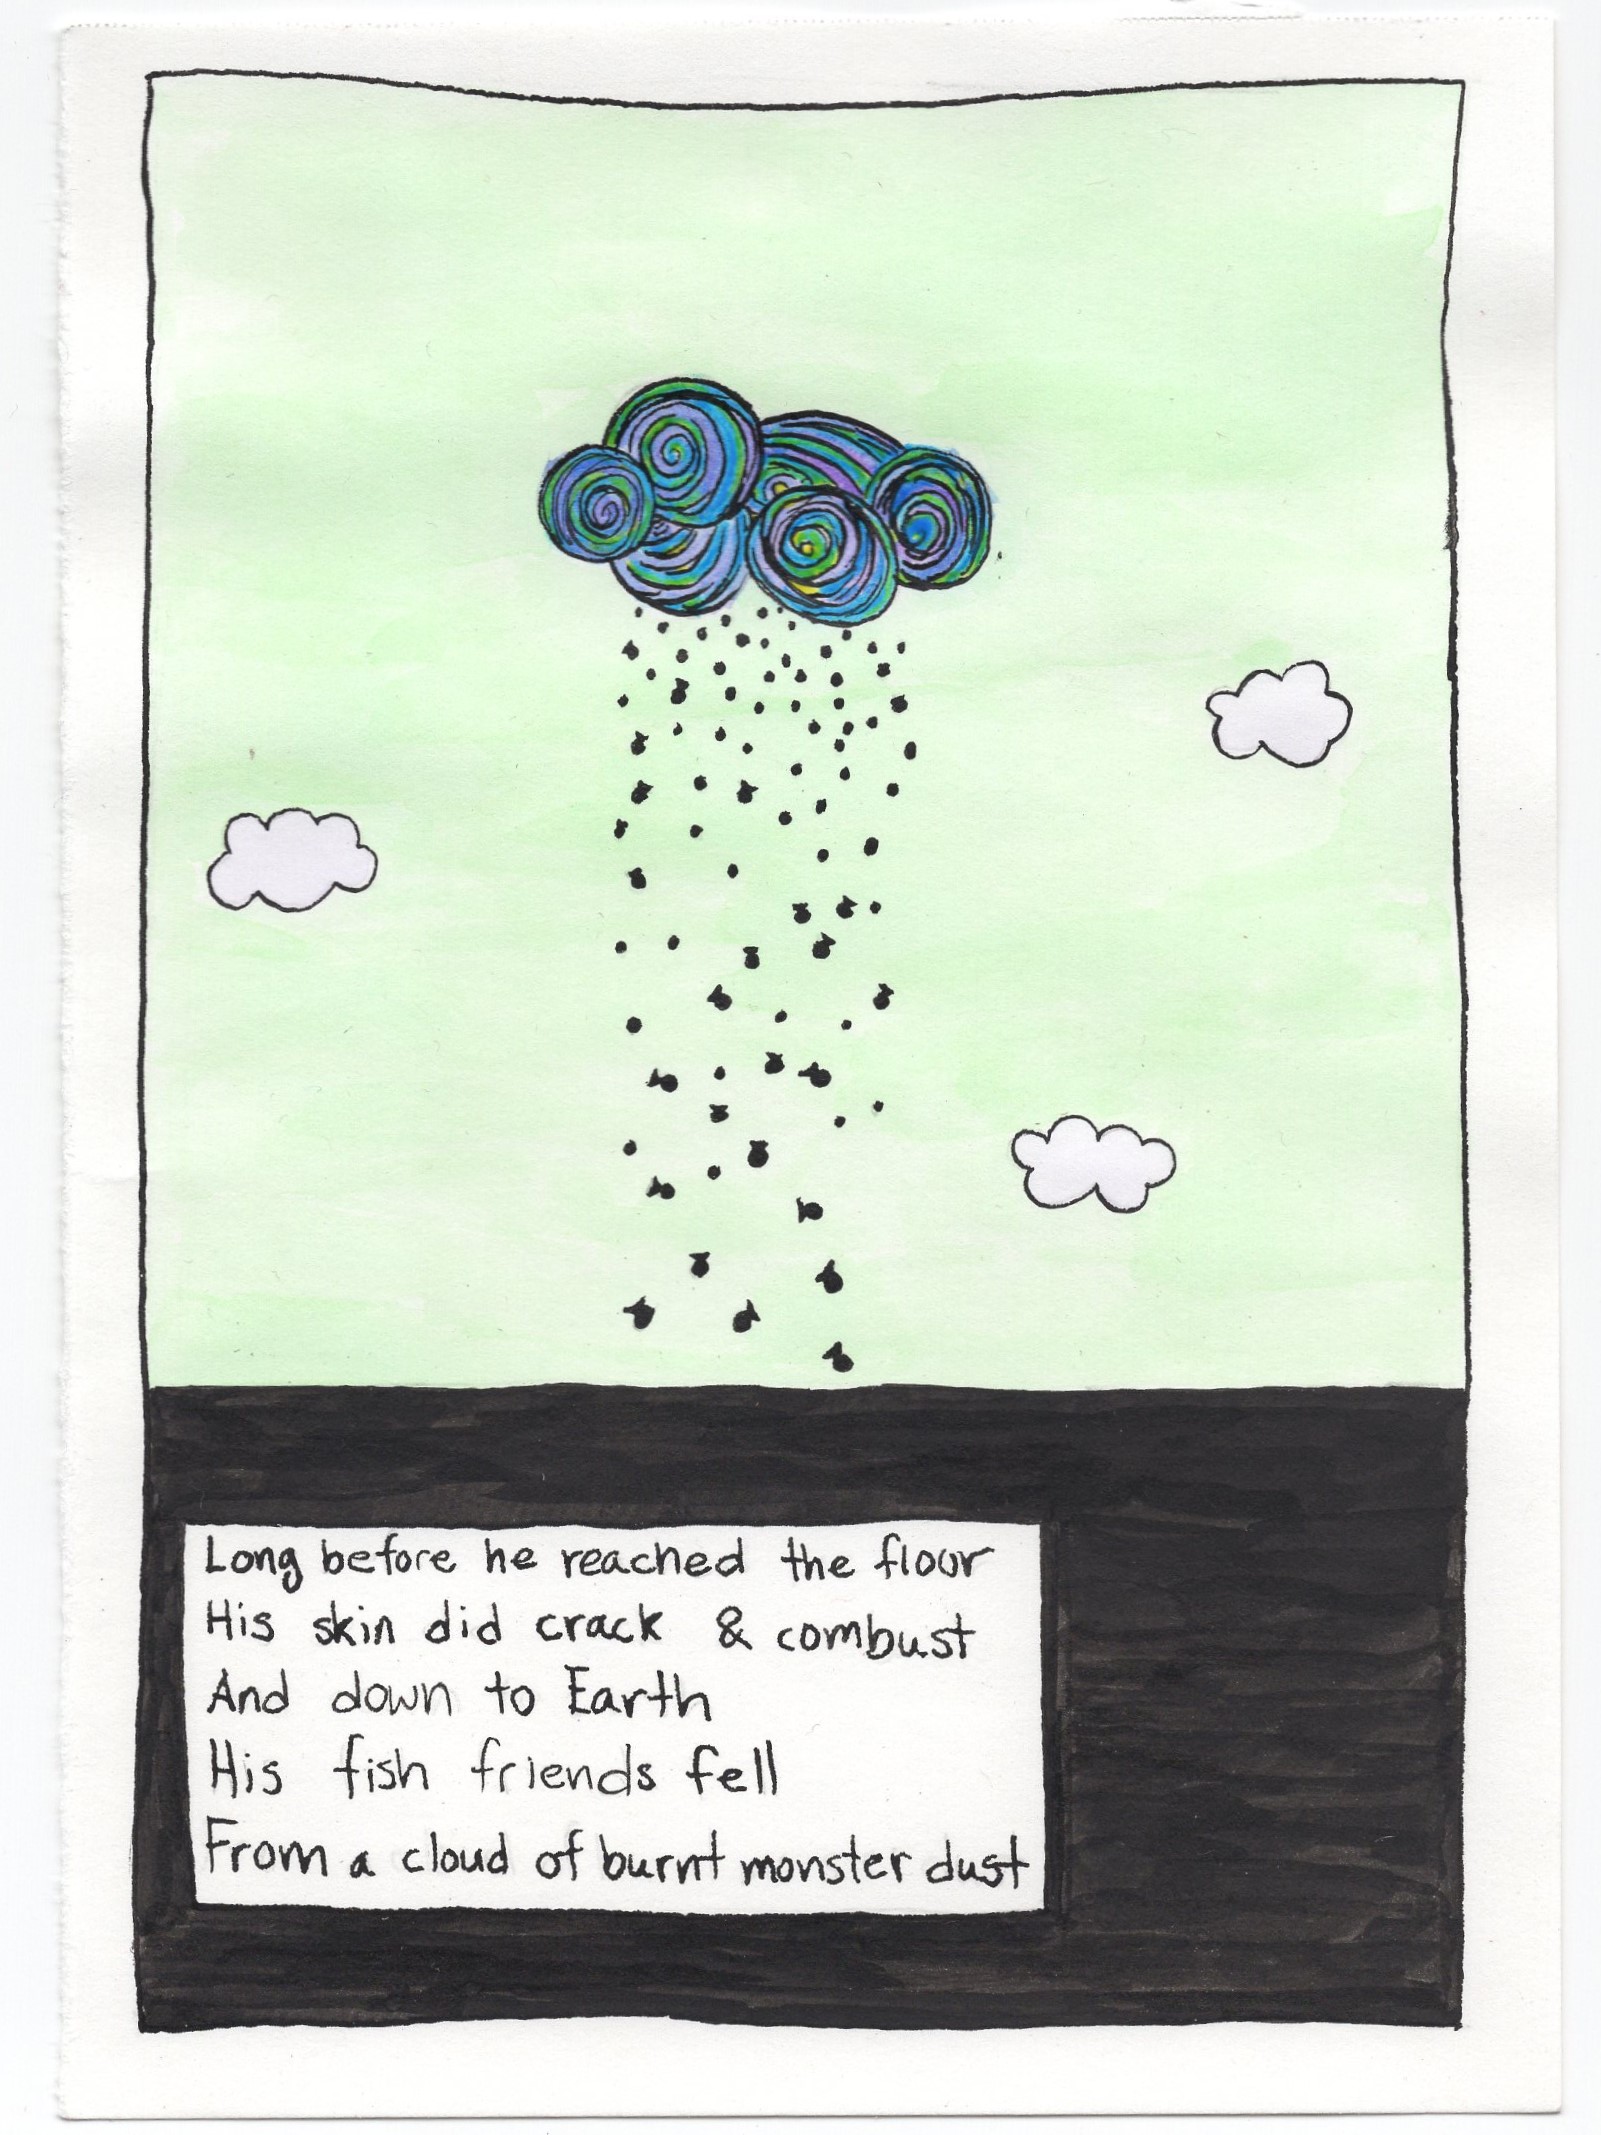 Long before he reached the flour
His skin did crack & combust
And down to Earth
His fish friends fell
From a cloud of burnt monster dust